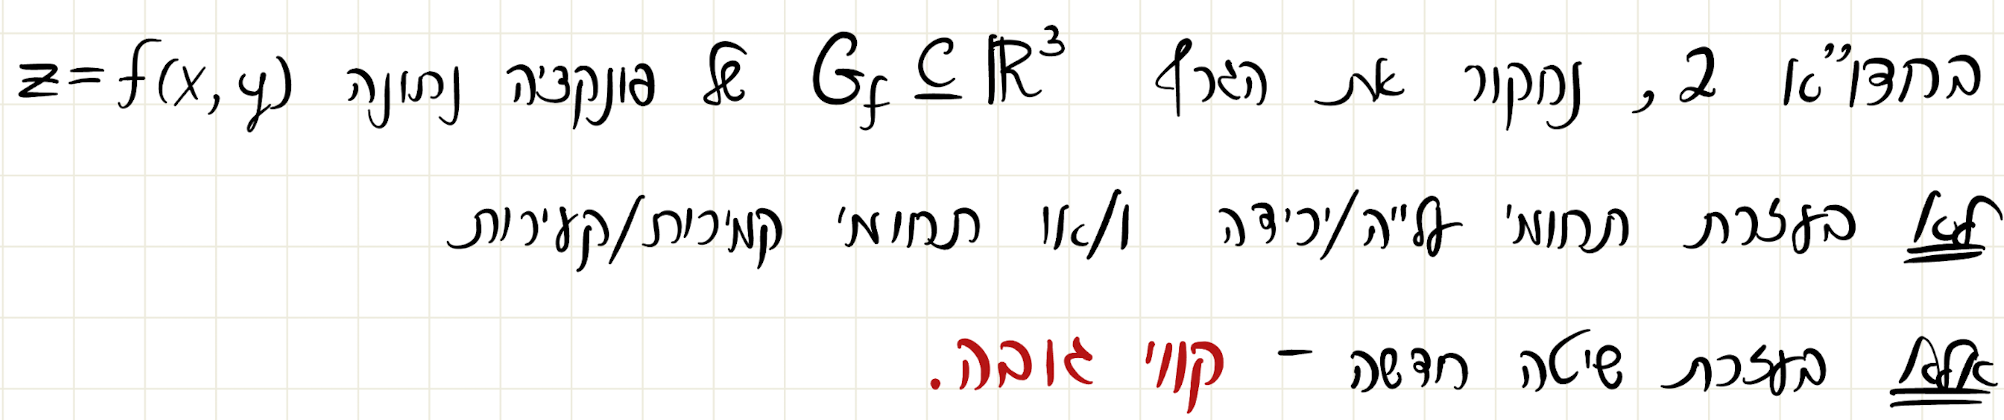 בחדו"א 2, נחקור את הגרף G_f ⊆ ℝ³ של פונקציה נתונה z=f(x,y)
לא בעזרת תחומי עלייה/ירידה ו/או תחומי קמירות/קעירות
אלא בעזרת שיטה חדשה – קווי גובה.